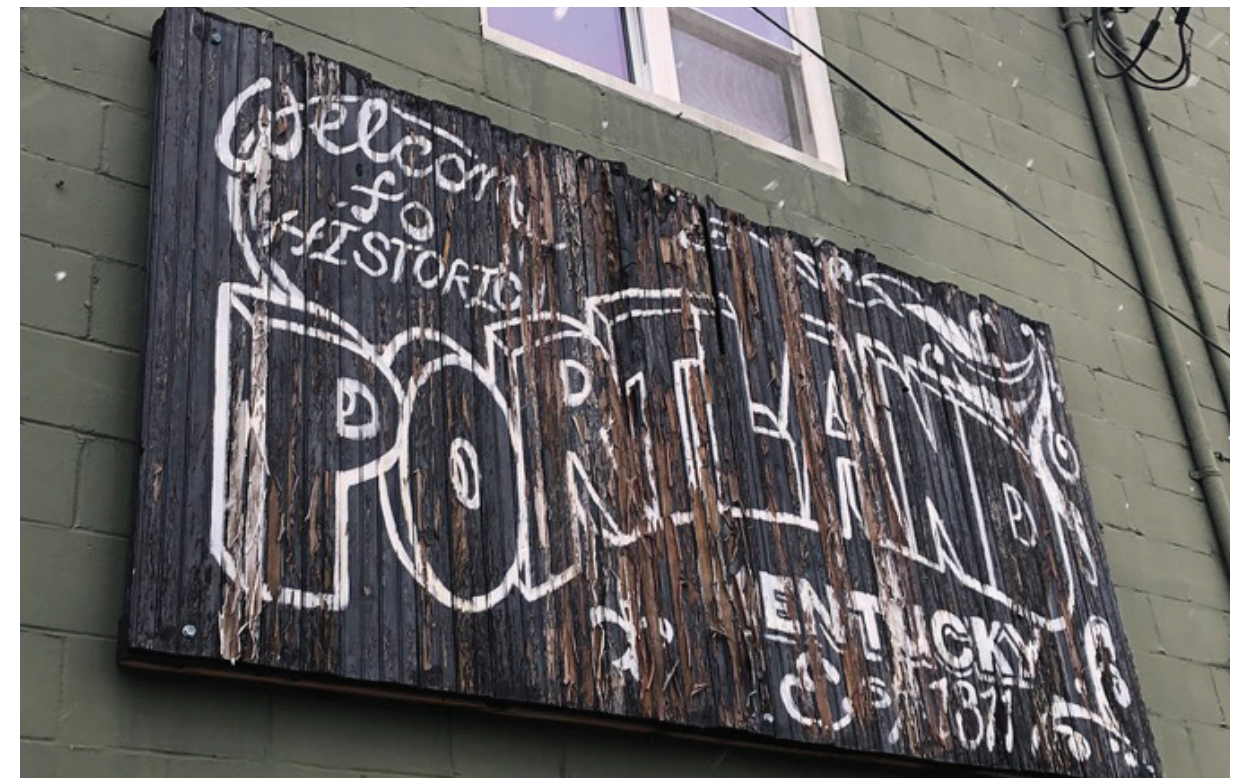 Welcome
to
HISTORIC
PORTLAND
ENTUCKY
1811